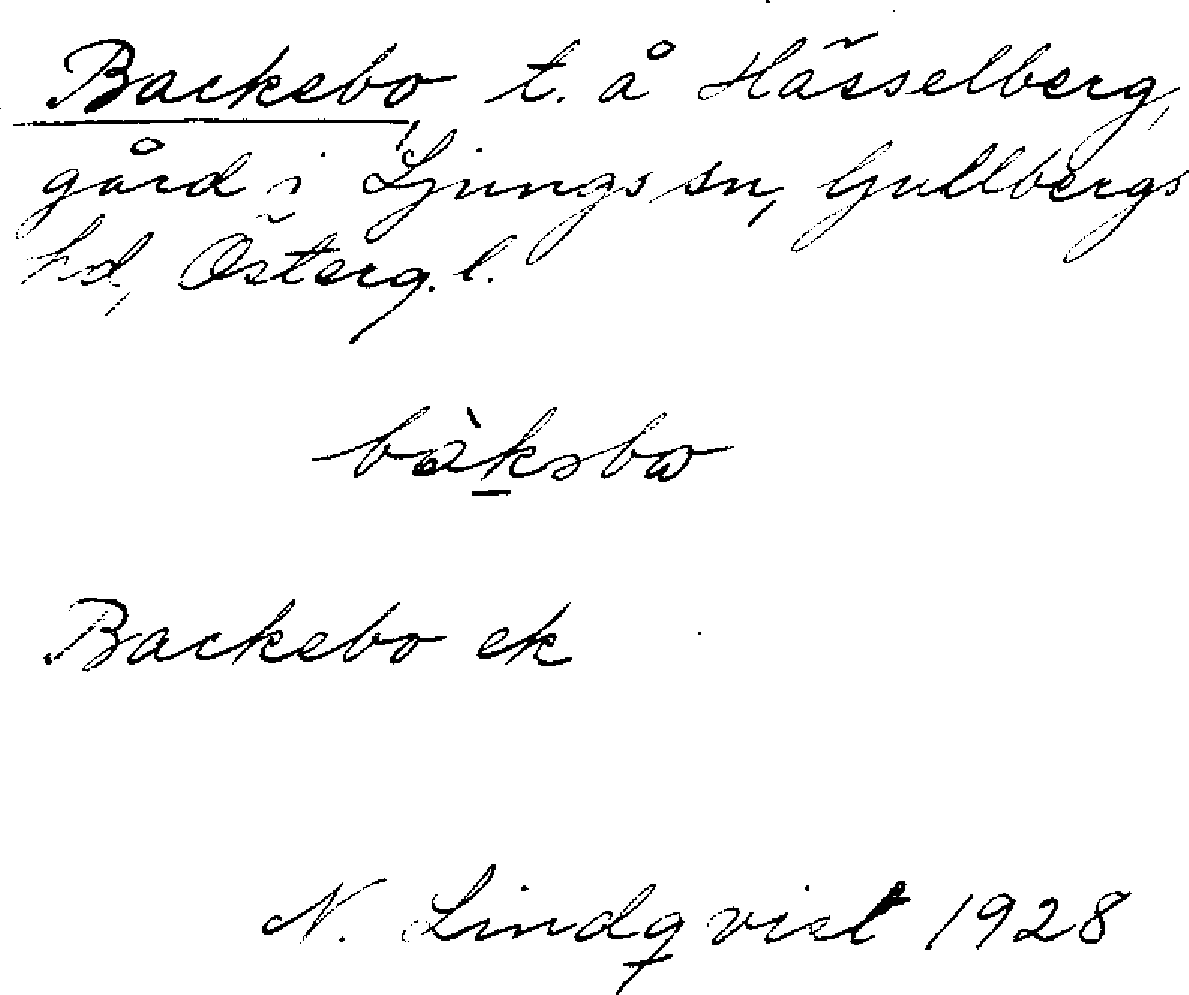 Backebo, t. å Hässelberg,
gård i Ljungs sn, Gullbergs
hd, Österg. l.
bàksbω
Backebo ek
N. Lindqvist 1928